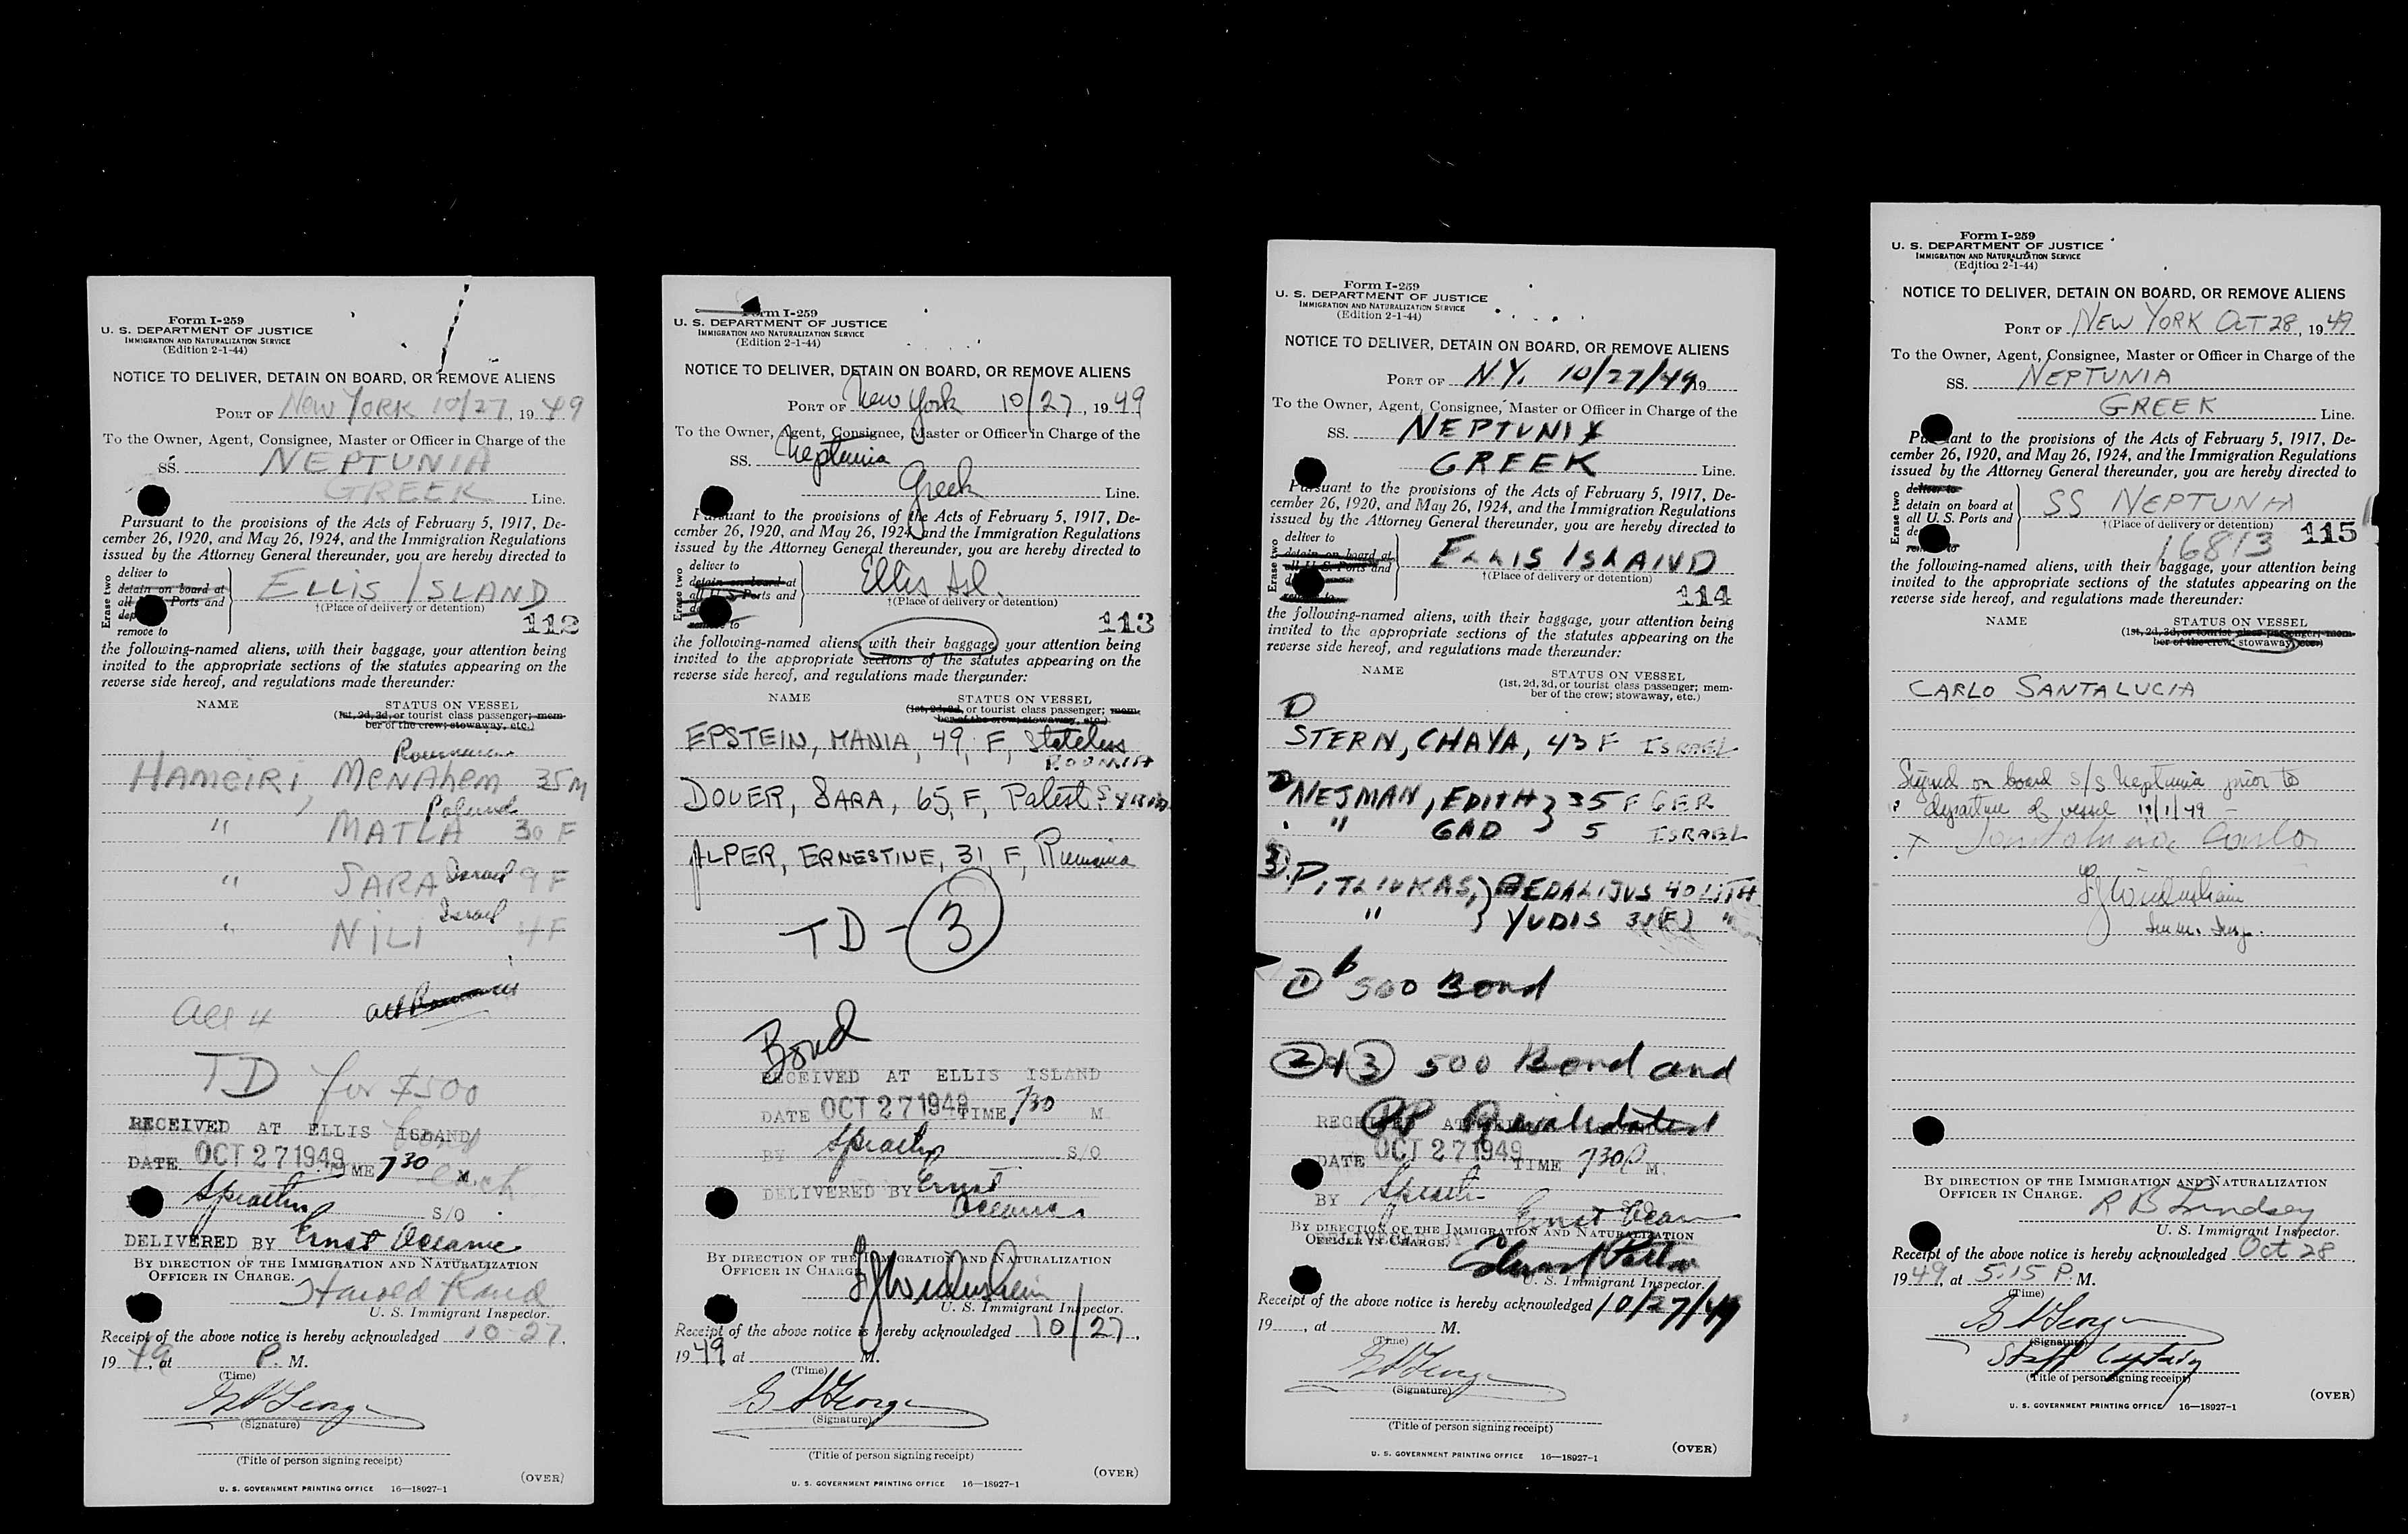 Form I-259
U. S. DEPARTMENT OF JUSTICE
IMMIGRATION AND NATURALIZATION SERVICE
(Edition 2-1-44)
NOTICE TO DELIVER, DETAIN ON BOARD, OR REMOVE ALIENS
PORT OF New York 10/27, 1949
To the Owner, Agent, Consignee, Master or Officer in Charge of the
SS. NEPTUNIA
GREEK Line.
Pursuant to the provisions of the Acts of February 5, 1917, De-
cember 26, 1920, and May 26, 1924, and the Immigration Regulations
issued by the Attorney General thereunder, you are hereby directed to
Erase two
deliver to
detain on board at
all Ports and
dep
remove to
ELLIS ISLAND
†(Place of delivery or detention)
112
the following-named aliens, with their baggage, your attention being
invited to the appropriate sections of the statutes appearing on the
reverse side hereof, and regulations made thereunder:
NAME STATUS ON VESSEL
(1st, 2d, 3d, or tourist class passenger; mem-
ber of the crew; stowaway, etc.)
HAMEIRI MENAHEM 35 M
Poland
" MATLA 30 F
" SARA Israel 9 F
" NILI Israel 4 F
all 4
TD for $500
Bond
each
RECEIVED AT ELLIS ISLAND
DATE OCT 27 1949 TIME 730 M.
S/O
DELIVERED BY Ernst Oceanic
BY DIRECTION OF THE IMMIGRATION AND NATURALIZATION
OFFICER IN CHARGE.
Harold Rand
U. S. Immigrant Inspector.
Receipt of the above notice is hereby acknowledged 10-27,
1949, at P. M.
(Time)
(Signature)
(Title of person signing receipt)
(OVER)
U. S. GOVERNMENT PRINTING OFFICE 16—18927-1
Form I-259
U. S. DEPARTMENT OF JUSTICE
IMMIGRATION AND NATURALIZATION SERVICE
(Edition 2-1-44)
NOTICE TO DELIVER, DETAIN ON BOARD, OR REMOVE ALIENS
PORT OF New York 10/27, 1949
To the Owner, Agent, Consignee, Master or Officer in Charge of the
SS. Neptunia
Greek Line.
Pursuant to the provisions of the Acts of February 5, 1917, De-
cember 26, 1920, and May 26, 1924, and the Immigration Regulations
issued by the Attorney General thereunder, you are hereby directed to
Erase two
deliver to
detain on board at
all U. S. Ports and
to
Ellis Isl.
†(Place of delivery or detention)
113
the following-named aliens, with their baggage, your attention being
invited to the appropriate sections of the statutes appearing on the
reverse side hereof, and regulations made thereunder:
NAME STATUS ON VESSEL
(1st, 2d, 3d, or tourist class passenger; mem-
ber of the crew; stowaway, etc.)
EPSTEIN, MANIA, 49, F, Stateless
DOVER, SARA, 65, F, Palest SYRIA
ALPER, ERNESTINE, 31, F, Rumania
TD - 3
Bond
RECEIVED AT ELLIS ISLAND
DATE OCT 27 1949 TIME 730 M
BY S/O
DELIVERED BY Ernst
Oceanic
BY DIRECTION OF THE IMMIGRATION AND NATURALIZATION
OFFICER IN CHARGE
U. S. Immigrant Inspector.
Receipt of the above notice is hereby acknowledged 10/27,
1949, at M.
(Time)
(Signature)
(Title of person signing receipt)
(OVER)
U. S. GOVERNMENT PRINTING OFFICE 16—18927-1
Form I-259
U. S. DEPARTMENT OF JUSTICE
IMMIGRATION AND NATURALIZATION SERVICE
(Edition 2-1-44)
NOTICE TO DELIVER, DETAIN ON BOARD, OR REMOVE ALIENS
PORT OF N.Y. 10/27/49 19
To the Owner, Agent, Consignee, Master or Officer in Charge of the
SS. NEPTUNIA
GREEK Line.
Pursuant to the provisions of the Acts of February 5, 1917, De-
cember 26, 1920, and May 26, 1924, and the Immigration Regulations
issued by the Attorney General thereunder, you are hereby directed to
Erase two
deliver to
detain on board at
all U. S. Ports and
ELLIS ISLAND
†(Place of delivery or detention)
114
the following-named aliens, with their baggage, your attention being
invited to the appropriate sections of the statutes appearing on the
reverse side hereof, and regulations made thereunder:
NAME STATUS ON VESSEL
(1st, 2d, 3d, or tourist class passenger; mem-
ber of the crew; stowaway, etc.)
STERN, CHAYA, 43 F ISRAEL
NEJMAN, EDITH 35 F GER
" GAD 5 ISRAEL
3 PITLIUKAS, GEDALIJUS 40 LITH
" YUDIS 38 (F) "
1 500 Bond
2 & 3 500 Bond and
PP Revalidated
DATE OCT 27 1949 TIME 730 P M.
BY
Ernst Ocean
BY DIRECTION OF THE IMMIGRATION AND NATURALIZATION
OFFICER IN CHARGE.
DELIVERED BY
U. S. Immigrant Inspector.
Receipt of the above notice is hereby acknowledged 10/27/49
19, at M.
(Time)
(Signature)
(Title of person signing receipt)
(OVER)
U. S. GOVERNMENT PRINTING OFFICE 16—18927-1
Form I-259
U. S. DEPARTMENT OF JUSTICE
IMMIGRATION AND NATURALIZATION SERVICE
(Edition 2-1-44)
NOTICE TO DELIVER, DETAIN ON BOARD, OR REMOVE ALIENS
PORT OF NEW YORK OCT 28, 1949
To the Owner, Agent, Consignee, Master or Officer in Charge of the
SS. NEPTUNIA
GREEK Line.
Pursuant to the provisions of the Acts of February 5, 1917, De-
cember 26, 1920, and May 26, 1924, and the Immigration Regulations
issued by the Attorney General thereunder, you are hereby directed to
Erase two
deliver to
detain on board at
all U. S. Ports and
de
SS NEPTUNIA
†(Place of delivery or detention)
16813 115
the following-named aliens, with their baggage, your attention being
invited to the appropriate sections of the statutes appearing on the
reverse side hereof, and regulations made thereunder:
NAME STATUS ON VESSEL
(1st, 2d, 3d, or tourist class passenger; mem-
ber of the crew; stowaway, etc.)
CARLO SANTALUCIA
Signed on board s/s Neptunia prior to
departure of vessel 11/1/49
x Carlo
Imm. Insp.
BY DIRECTION OF THE IMMIGRATION AND NATURALIZATION
OFFICER IN CHARGE.
R B Lindsey
U. S. Immigrant Inspector.
Receipt of the above notice is hereby acknowledged Oct 28
1949, at 5:15 P. M.
(Time)
(Signature)
Staff Captain
(Title of person signing receipt)
(OVER)
U. S. GOVERNMENT PRINTING OFFICE 16—18927-1